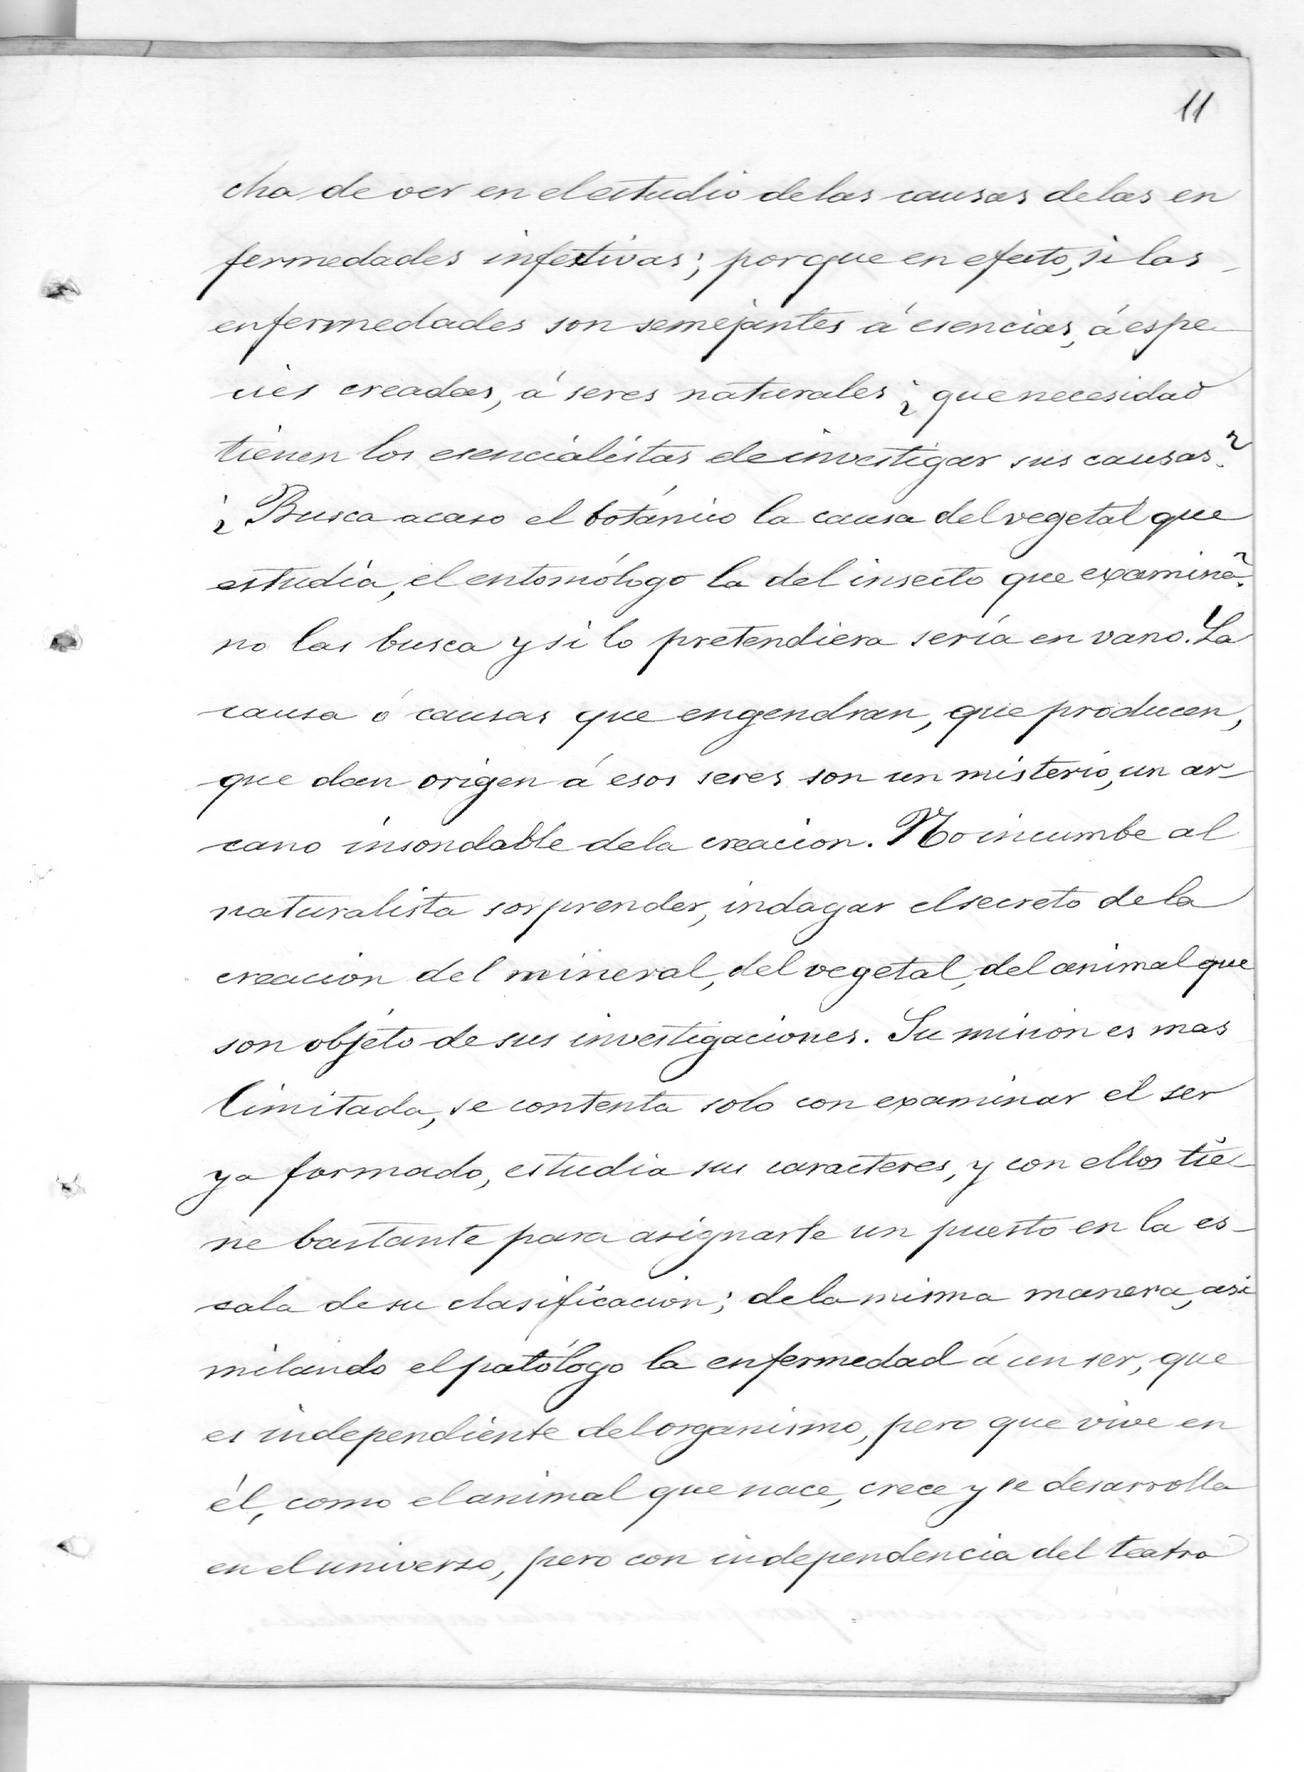 11
cha de ver en el estudio de las causas de las en
fermedades infectivas; porque en efecto, si las
enfermedades son semejantes á esencias, á espe
cies creadas, á seres naturales ¿ que necesidad
tienen los esencialistas de investigar sus causas?
¿ Busca acaso el botánico la causa del vegetal que
estudia, el entomólogo la del insecto que examina?
no las busca y si lo pretendiera sería en vano. La
causa ó causas que engendran, que producen,
que dan origen á esos seres son un misterio, un ar-
cano insondable de la creacion. No incumbe al
naturalista sorprender, indagar el secreto de la
creacion del mineral, del vegetal, del animal que
son objeto de sus investigaciones. Su mision es mas
limitada, se contenta solo con examinar el ser
ya formado, estudia sus caracteres, y con ellos tie-
ne bastante para asignarle un puesto en la es-
cala de su clasificacion; de la misma manera, asi
milando el patólogo la enfermedad á un ser, que
es independiente del organismo, pero que vive en
él, como el animal que nace, crece y se desarrolla
en el universo, pero con independencia del teatro